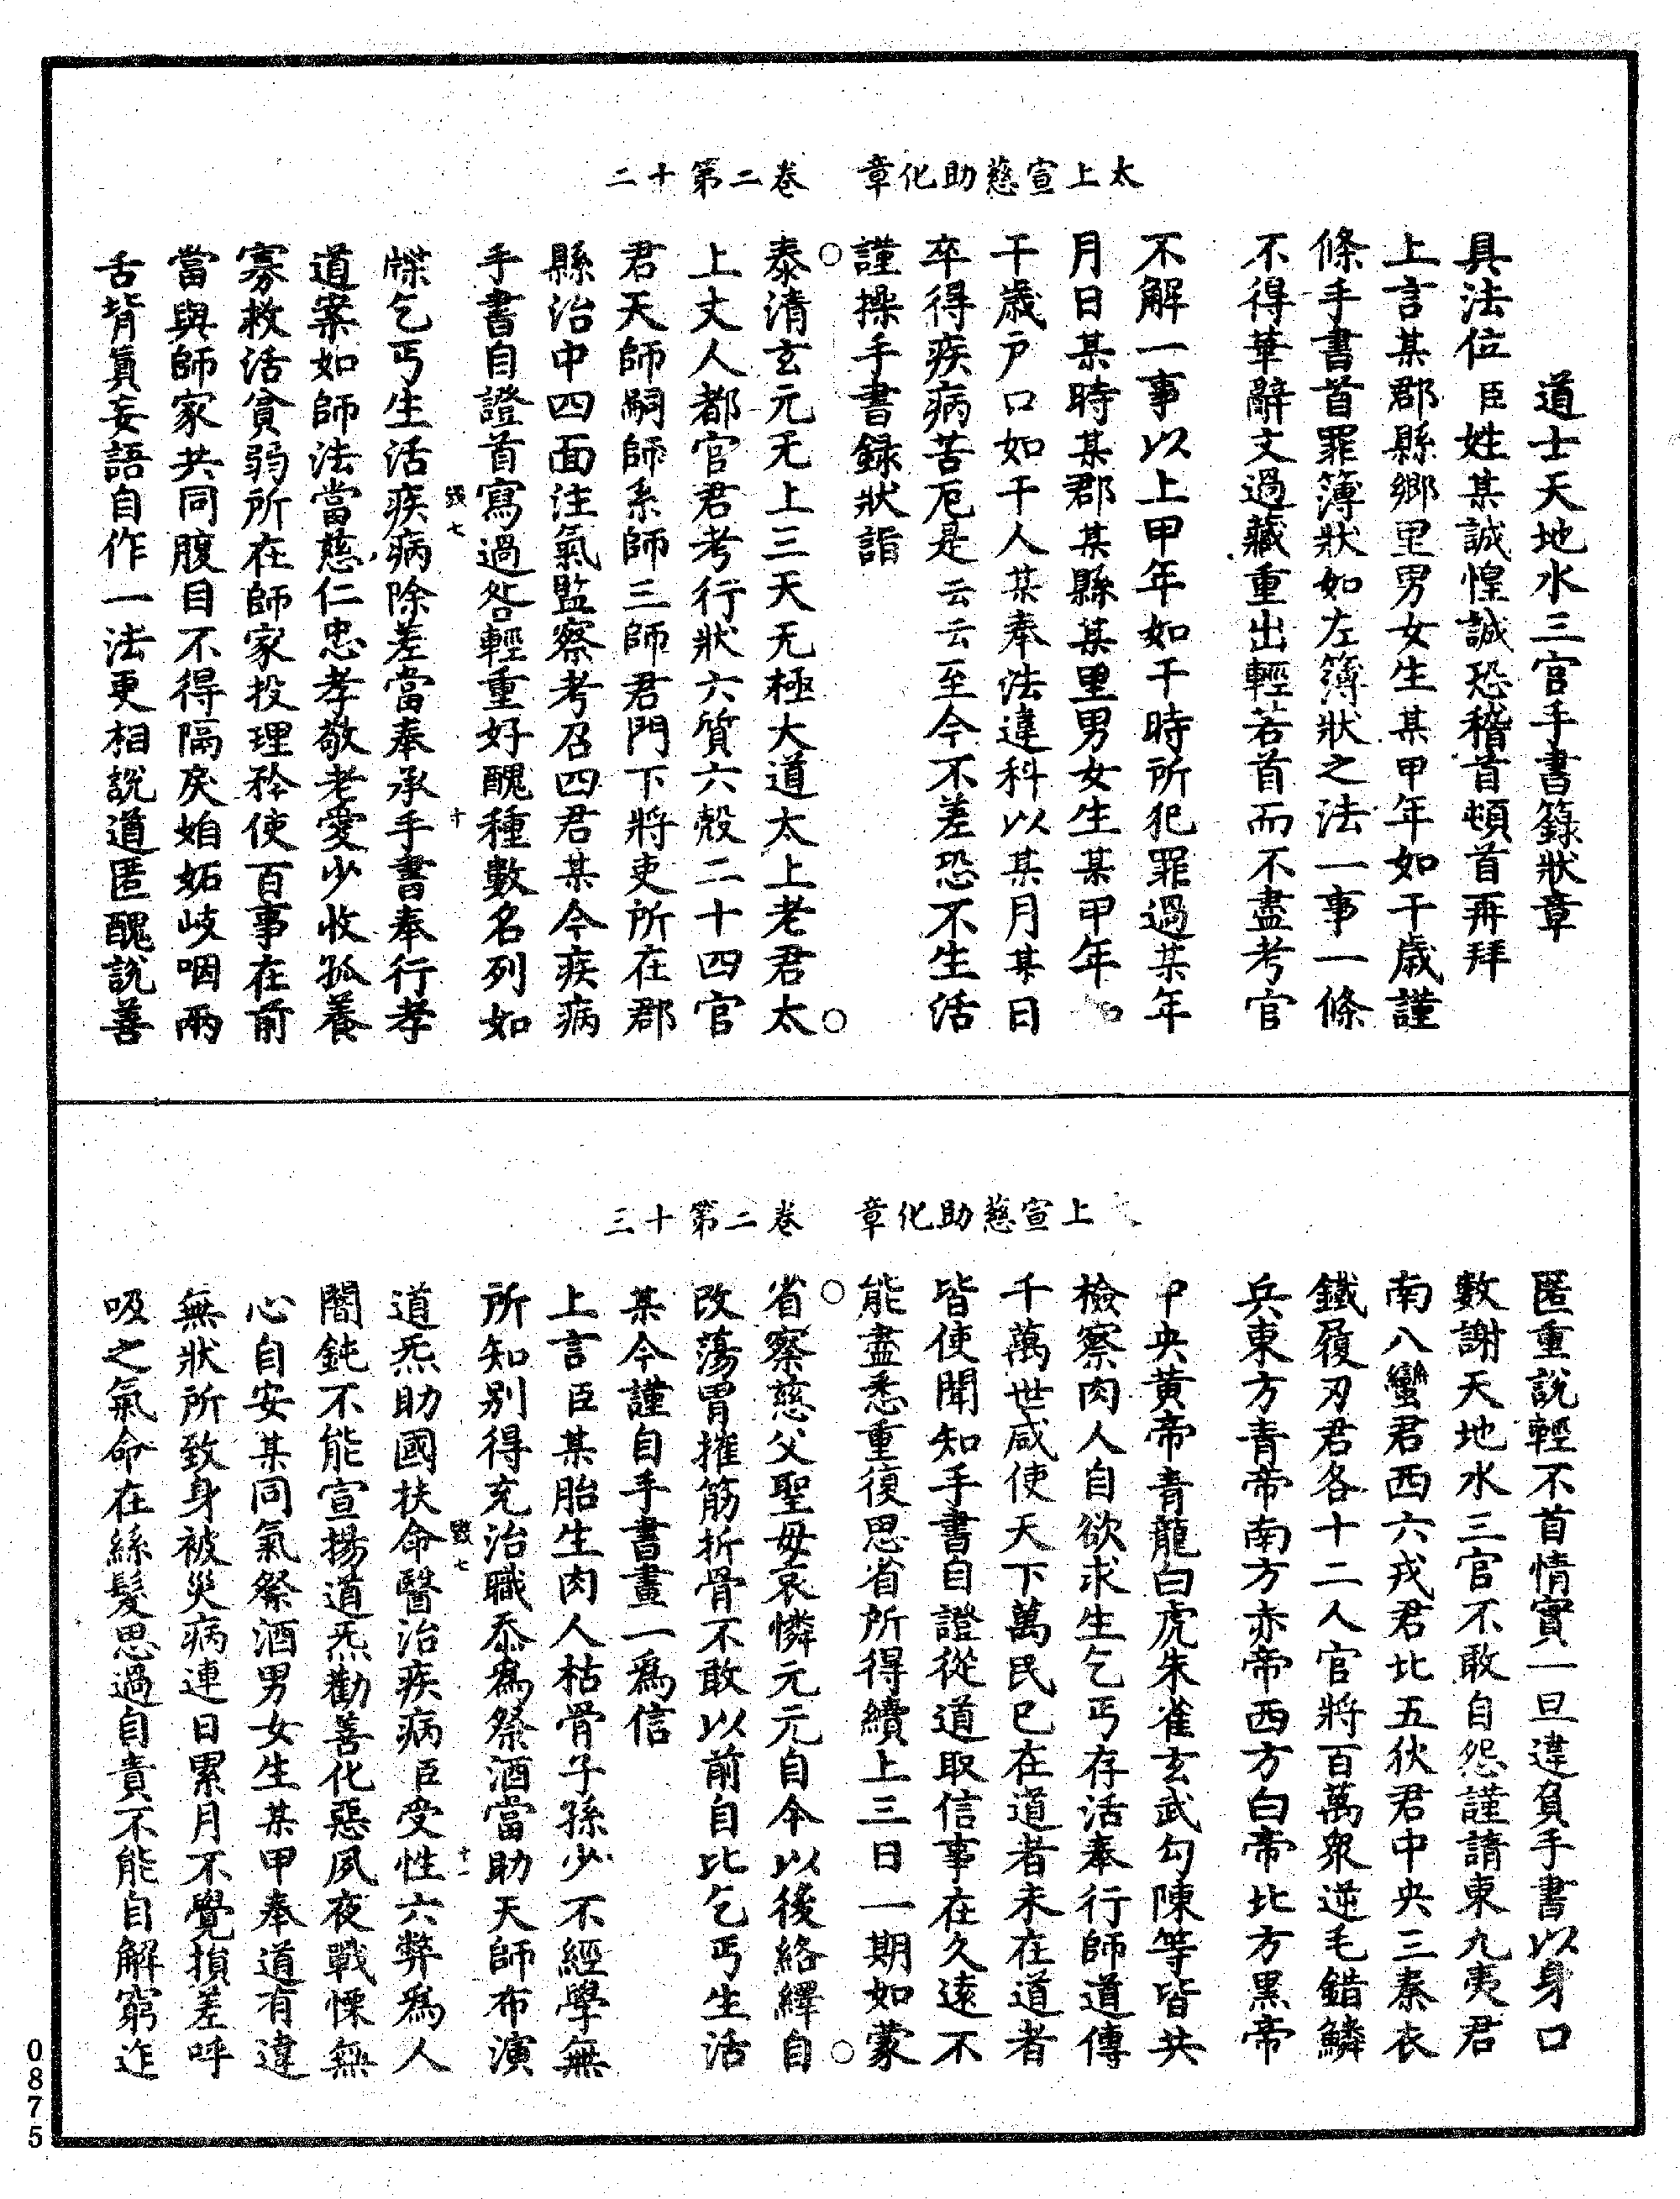 太上宣慈助化章　卷二第十二
道士天地水三官手書籙狀章
具法位臣姓某誠惶誠恐稽首頓首再拜
上言某郡縣鄉里男女生某甲年如干歲謹
條手書首罪簿狀如左簿狀之法一事一條
不得華辭文過藏重出輕若首而不盡考官
不解一事以上甲年如干時所犯罪過某年
月日某時某郡某縣某里男女生某甲年
干歲戶口如干人某奉法違科以某月某日
卒得疾病苦厄是云云至今不差恐不生活
謹操手書録狀詣
泰清玄元无上三天无極大道太上老君太
上丈人都官君考行狀六質六殼二十四官
君天師嗣師系師三師君門下將吏所在郡
縣治中四面注氣監察考召四君某今疾病
手書自證首寫過咎輕重好醜種數名列如
毀七　十
牒乞丐生活疾病除差當奉承手書奉行孝
道案如師法當慈仁忠孝敬老愛少收孤養
寡救活貧弱所在師家投理矜使百事在前
當與師家共同腹目不得隔戾姤妬岐咽兩
舌背真妄語自作一法更相說道匿醜說善
上宣慈助化章　卷二第十三
匿重說輕不首情實一旦違負手書以身口
數謝天地水三官不敢自怨謹請東九夷君
南八蠻君西六戎君北五狄君中央三秦衣
鐵履刃君各十二人官將百萬眾逆毛錯鱗
兵東方青帝南方赤帝西方白帝北方黑帝
中央黃帝青龍白虎朱雀玄武勾陳等皆共
檢察肉人自欲求生乞丐存活奉行師道傳
千萬世咸使天下萬民已在道者未在道者
皆使聞知手書自證從道取信事在久遠不
能盡悉重復思省所得續上三日一期如蒙
省察慈父聖母哀憐元元自今以後絡繹自
改蕩胃摧筋折骨不敢以前自比乞丐生活
某今謹自手書畫一為信
上言臣某胎生肉人枯骨子孫少不經學無
所知別得充治職忝為祭酒當助天師布演
毀七　十一
道炁助國扶命醫治疾病臣受性六弊為人
闇鈍不能宣揚道炁勸善化惡夙夜戰慄無
心自安某同氣祭酒男女生某甲奉道有違
無狀所致身被災病連日累月不覺損差呼
吸之氣命在絲髮思過自責不能自解窮迮
0875